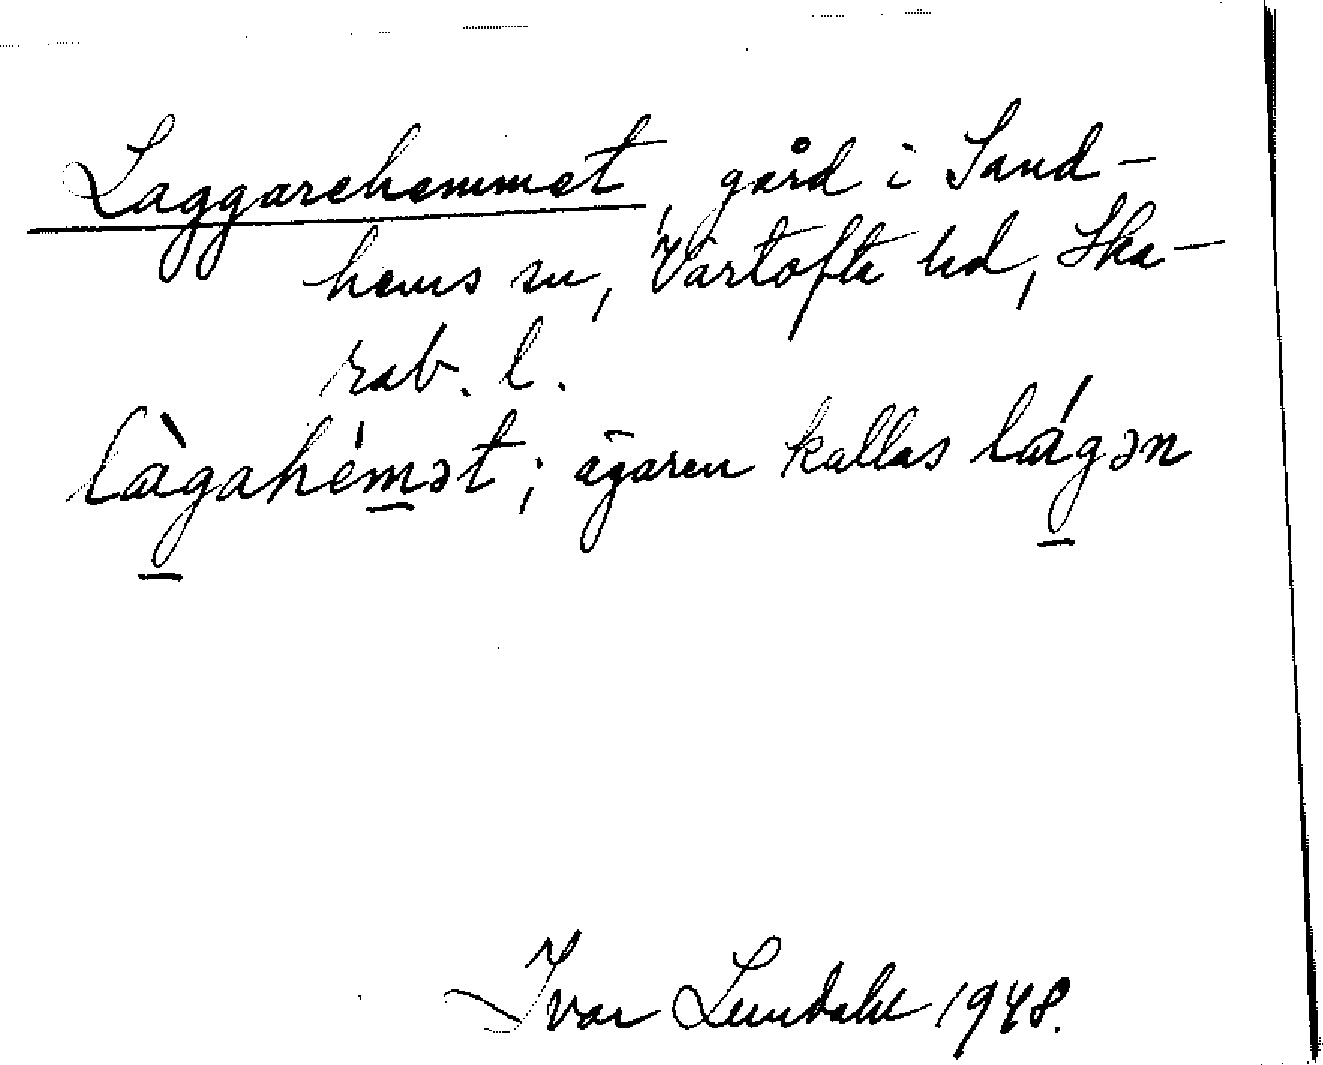 Laggarehemmet, gård i Sand-
hems sn, Vartofta hd, Ska-
rab. l.
làg̲ahém̲ət; ägaren kallas lág̲ən
Ivar Lundahl 1948.